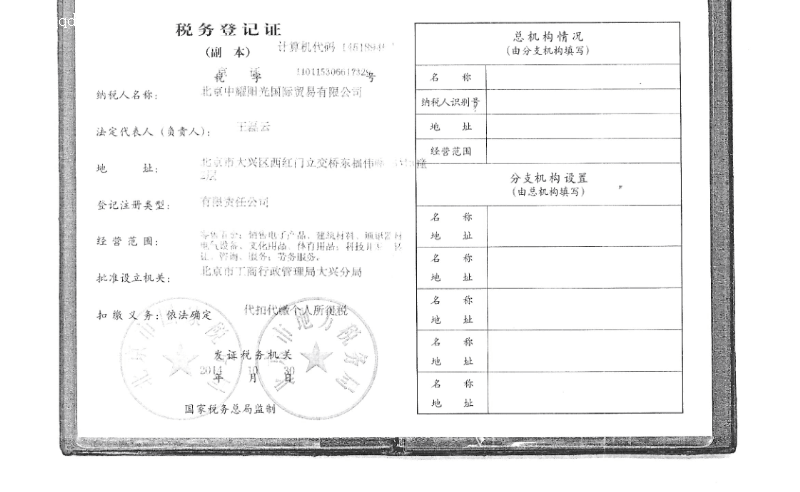 税务登记证
(副 本)
计算机代码
税 字 号
纳税人名称： 北京中耀阳光国际贸易有限公司
法定代表人（负责人）： 王磊云
地 址： 北京市大兴区西红门立交桥东
2层
登记注册类型： 有限责任公司
经营范围： 销售电子产品、建筑材料、
电气设备、文化用品、体育用品；科技
咨询、服务；劳务服务。
批准设立机关： 北京市工商行政管理局大兴分局
扣缴义务：依法确定 代扣代缴个人所得税
发证税务机关
2014 10 30
年 月 日
国家税务总局监制
北京市 税
北京市地方税务局
总机构情况
(由分支机构填写)
名 称
纳税人识别号
地 址
经营范围
分支机构设置
(由总机构填写)
名 称
地 址
名 称
地 址
名 称
地 址
名 称
地 址
名 称
地 址